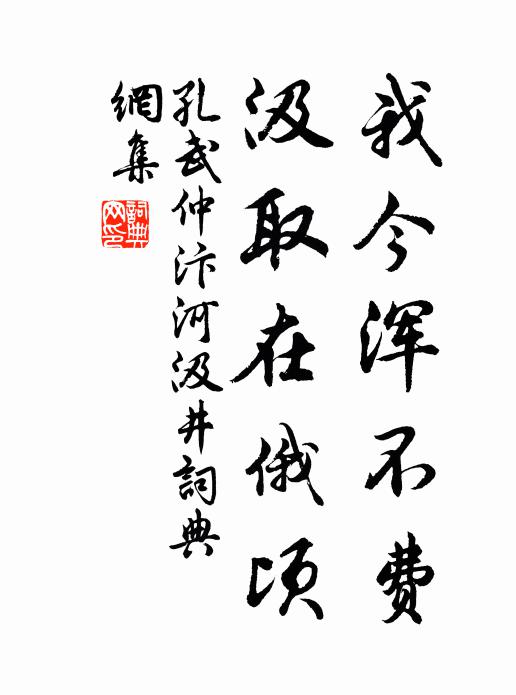 我今浑不费
汲取在俄顷
孔武仲汴河汲井詞典
網集
詞典
网印